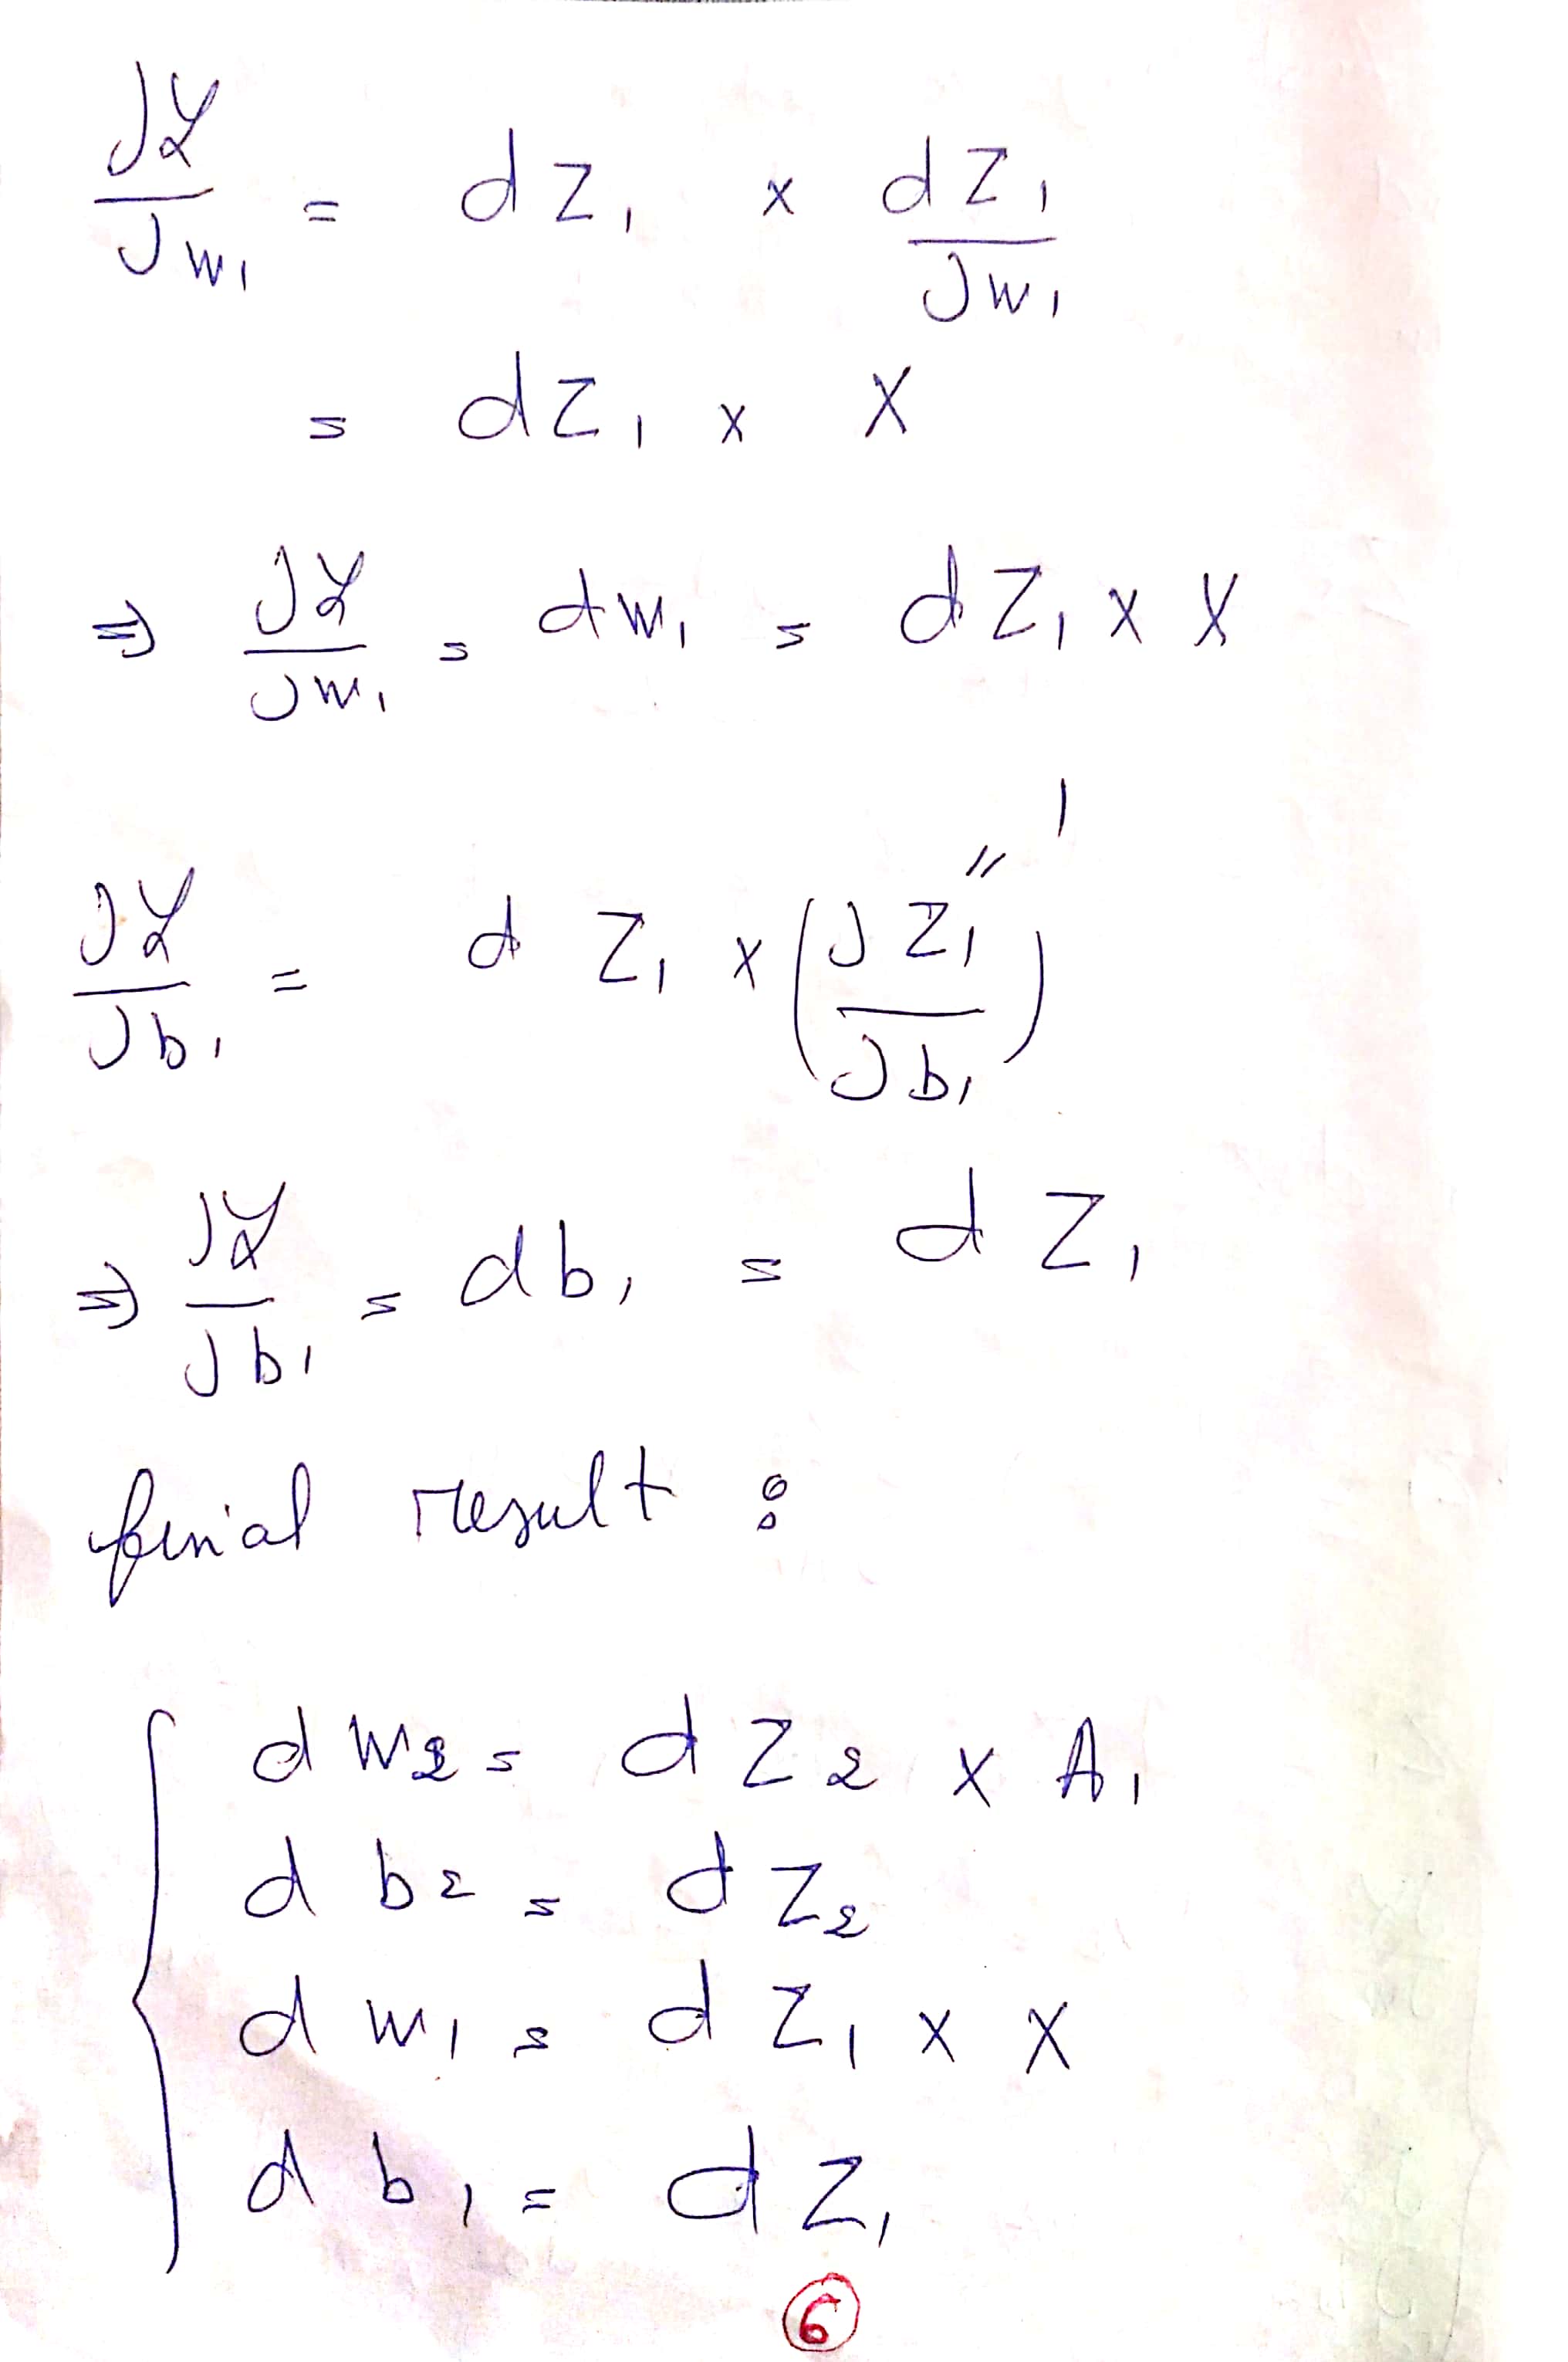 ∂ℒ/∂w₁ = dZ₁ × dZ₁/∂w₁
= dZ₁ × X
⇒ ∂ℒ/∂w₁ = dw₁ = dZ₁ × X
∂ℒ/∂b₁ = dZ₁ × (∂Z₁/∂b₁) " 1
⇒ ∂ℒ/∂b₁ = db₁ = dZ₁
finial result :
{ dw₂ = dZ₂ × A₁
db₂ = dZ₂
dw₁ = dZ₁ × X
db₁ = dZ₁
6